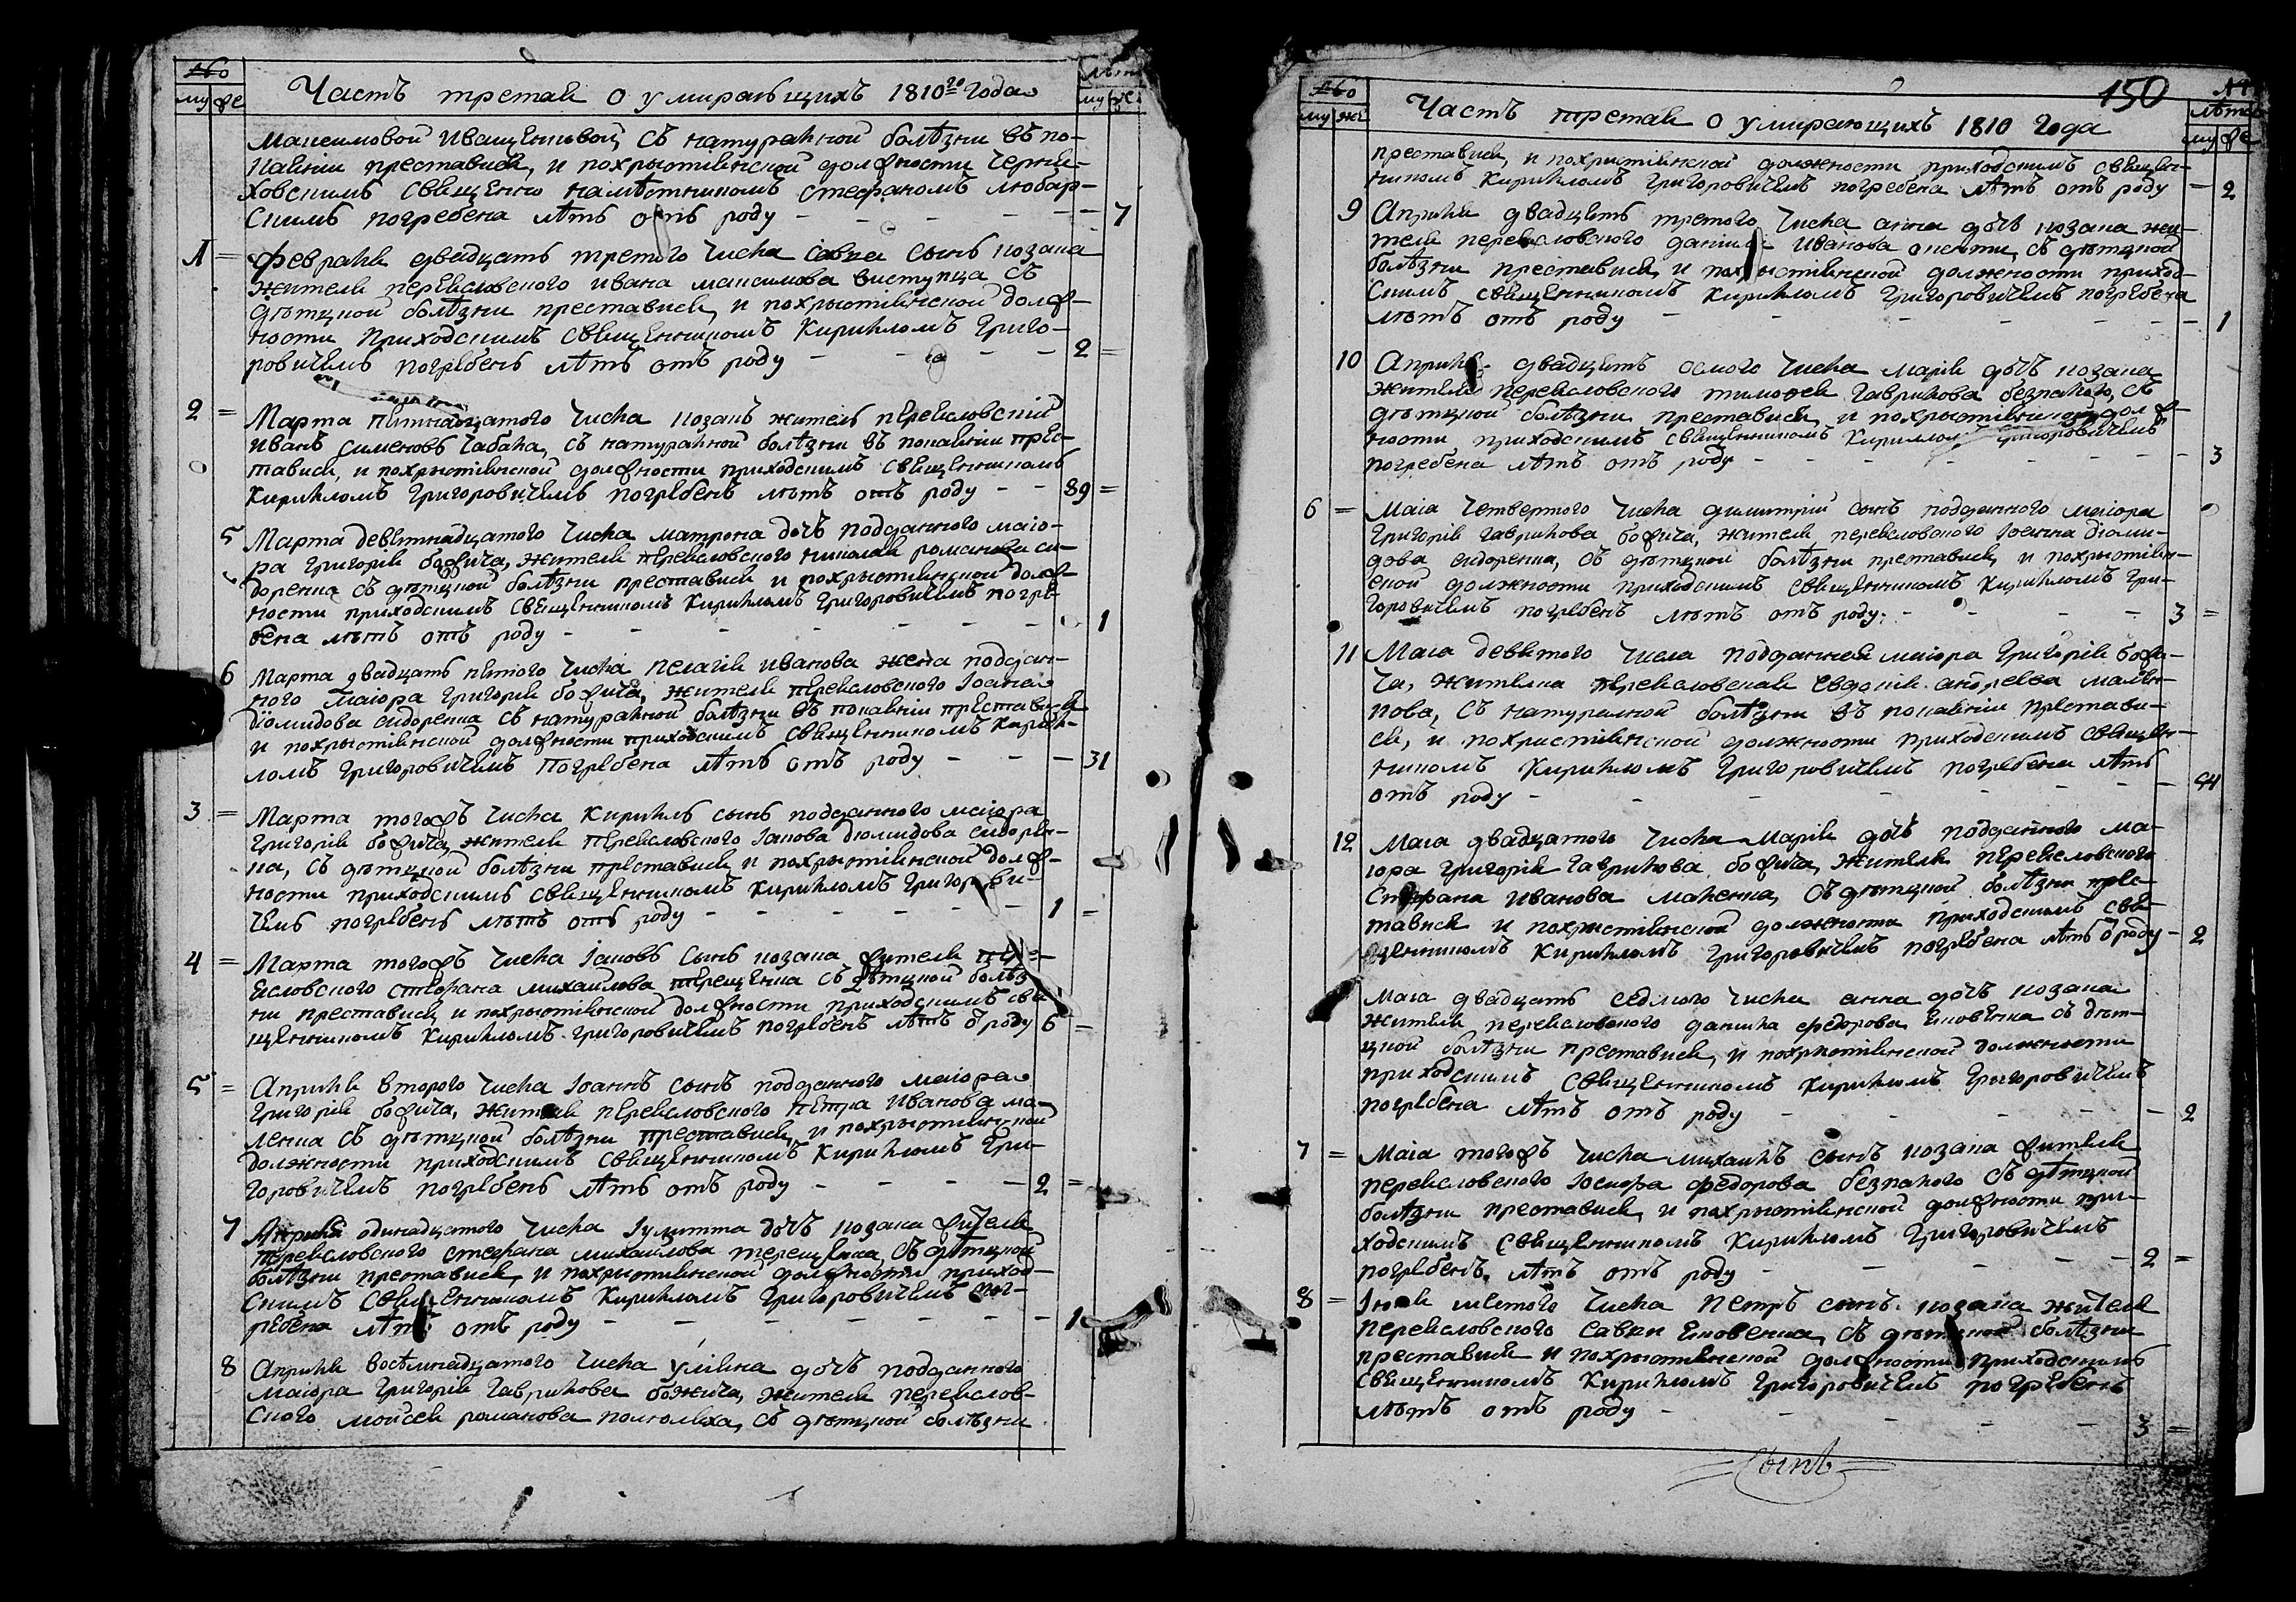 Часть третая о умирающихъ 1810го года
му же
му же
Максимовой Иващенковой, съ натуралной болѣзни въ по-
каянии преставися, и похрыстиянской должности черня-
ховскимъ священно намѣстникомъ Стефаномъ Любар-
скимъ погребена лѣтъ отъ роду - - - - - - 7
1 = Февраля двадцать третого числа Савка сынъ козака
жителя переясловского Ивана Максимова Виступца съ
дѣтцкой болѣзни преставися, и похрыстиянской долж-
ности приходскимъ священникомъ Кирилломъ Григо-
ровичемъ погребенъ лѣтъ отъ роду - - - - 2 =
2 = Марта пятнадцатого числа козакъ житель переясловский
Иванъ Сименовъ Чабака, съ натуралной болѣзни въ покаянии прес-
тавися, и похрыстиянской должности приходскимъ священникомъ
Кирилломъ Григоровичемъ погребенъ лѣтъ отъ роду - - 89 =
5 Марта девятнадцатого числа Матрона дочь подданного маіо-
ра Григорія Божича, жителя переясловского Николая Романова си-
доренка съ дѣтцкой болѣзни преставися и похрыстиянской долж-
ности приходскимъ священникомъ Кирилломъ Григоровичемъ погре-
бена лѣтъ отъ роду - - - - - - 1
6 Марта двадцать пятого числа Пелагія Иванова жена поддан-
ного маіора Григорія Божича, жителя переясловского Іоанна
Діомидова Сидоренка съ натуралной болѣзни въ покаянии преставися
и похрыстиянской должности приходскимъ священникомъ Кирил-
ломъ Григоровичемъ погребена лѣтъ отъ роду - - - 31
3 = Марта тогожъ числа Кириллъ сынъ подданного маіора
Григорія Божича, жителя переясловского Іакова Дюмидова Сидорен-
ка, съ дѣтцкой болѣзни преставися и похрыстиянской долж-
ности приходскимъ священникомъ Кирилломъ Григорови-
чемъ погребенъ лѣтъ отъ роду - - - - - - 1 =
4 = Марта тогожъ числа Іаковъ сынъ козака жителя пере-
ясловского Стефана Михайлова Терещенка съ дѣтцкой болѣз-
ни преставися и похрыстиянской должности приходскимъ свя-
щенникомъ Кирилломъ Григоровичемъ погребенъ лѣтъ о роду 6 =
5 = Апрѣля второго числа Іоаннъ сынъ подданного маіора
Григорія Божича, жителя переясловского Петра Иванова ма-
ленка съ дѣтцкой болѣзни преставися, и похрыстиянской
должности приходскимъ священникомъ Кирилломъ Гри-
горовичемъ погребенъ лѣтъ отъ роду - - - - 2 =
7 Априля одинадцатого числа Іулитта дочъ козака жителя
переясловского Стефана Михайлова Терещенка, съ дѣтцкой
болѣзни преставися, и похрыстиянской должности приход-
скимъ священникомъ Кирилломъ Григоровичемъ пог-
ребена лѣтъ отъ роду - - - - - - - 1
8 Априля восѣмнадцатого числа Уліяна дочъ подданного
маіора Григорія Гаврилова Божича, жителя переяслов-
ского Мойсея Романова Полюляха, съ дѣтцкой болѣзни
150
Часть третая о умирающихъ 1810 года
му же
лѣта
му же
преставися, и похристиянской должности приходскимъ священ-
никомъ Кирилломъ Григоровичемъ погребена лѣтъ отъ роду - 2
9 Априля двадцять третого числа Анна дочъ козака жи-
теля переясловского Данила Иванова съ дѣтцкой
болѣзни преставися, и похрыстиянской должности приход-
скимъ священникомъ Кирилломъ Григоровичемъ погребена
лѣтъ отъ роду - - - - - - 1
10 Априля двадцять осмого числа Марія дочъ козака
жителя переясловского Тимофея Гаврилова Безпалого, съ
дѣтцкой болѣзни преставися, и похрыстиянской долж-
ности приходскимъ священникомъ Кирилломъ Григоровичемъ
погребена лѣтъ отъ роду - - - - - - - 3
6 = Маія четвертого числа Димитрій сынъ подданного маіора
Григорія Гаврилова Божича, жителя переясловского Іоанна Діоми-
дова Сидоренка, съ дѣтцкой болѣзни преставися, и похрыстиян-
ской должности приходскимъ священникомъ Кирилломъ Гри-
горовичемъ погребенъ лѣтъ отъ роду: - - - - 3 =
11 Маія девятого числа подданная маіора Григорія Божи-
ча, жителка переясловская Евдокія Андреева Мален-
кова, съ натуралной болѣзни въ покаянии престави-
ся, и похристиянской должности приходскимъ священ-
никомъ Кирилломъ Григоровичемъ погребена лѣтъ
отъ роду - - - - - - - 44
12 Маія двадцатого числа Марія дочъ подданного ма-
іора Григорія Гаврилова Божича, жителя переясловского
Стефана Иванова Маленка, съ дѣтцкой болѣзни прес-
тавися и похристиянской должности приходскимъ свя-
щенникомъ Кирилломъ Григоровичемъ погребена лѣтъ о роду - 2
Маія двадцать седмого числа Анна дочъ козака
жителя переясловского Данила Федорова Яковенка съ дѣт-
цкой болѣзни преставися, и похрыстиянской должности
приходскимъ священникомъ Кирилломъ Григоровичемъ
погребена лѣтъ отъ роду - - - - - 2
7 = Маія тогожъ числа Михаилъ сынъ козака жителя
переясловского Іосифа Федорова Безпалого съ дѣтцкой
болѣзни преставися, и похрыстиянской должности при-
ходскимъ священникомъ Кирилломъ Григоровичемъ
погребенъ лѣтъ отъ роду - - - - - 2 =
8 = Іюня шестого числа Петръ сынъ козака жителя
переясловского Савки Яковенка, съ дѣтцкой болѣзни
преставися и похрыстиянской должности приходскимъ
священникомъ Кирилломъ Григоровичемъ погребенъ
лѣтъ отъ роду - - - - - 3 =